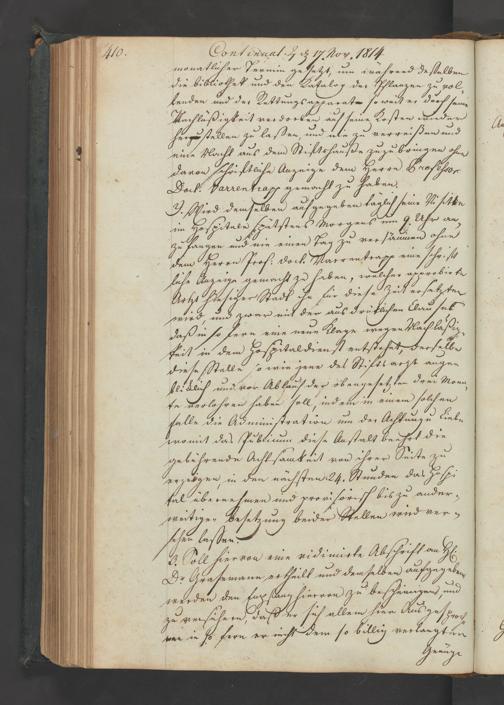 410. Continuat. d. d. 17. Nov. 1814
monatlicher Termin gesetzt, um während desselben
die Bibliothek und den Katalog der Pflanzen zu vol-
lenden und der Rettungsapparat soweit er durch seine
Nachlässigkeit verdorben auf seine Kosten wieder
herzustellen zu lassen, und nie zu verreisen und
eine Nacht aus dem Stiftshause zuzubringen ohne
davon schriftliche Anzeige dem Herrn Professor
Doct. Varrentrapp gemacht zu haben.
2. Wird demselben aufgegeben täglich seine Visite
im Hospitale spätestens Morgens um 9 Uhr an-
zufangen und nie einen Tag zu versäumen ohne
dem Herrn Prof: Doct. Varrentrapp eine schrift-
liche Anzeige gemacht zu haben, welcher approbirte
Arzt hiesiger Stadt ihn für diese Zeit ersetzen
wird und zwar mit der ausdrücklichen Clausul
daß in so fern eine neue Klage wegen Nachläßig-
keit in dem Hospitaldienst entstehet, derselbe
diese Stelle sowie jene des Stiftsarzt augen-
blicklich und vor Ablauf der obengesetzten drei Mona-
te verlohren haben soll, indem in einem solchen
Falle die Administration um der Achtung u Liebe
womit das Publicum diese Anstalt beehrt die
gebührende Achtsamkeit von ihrer Seite zu
erzeigen in den nächsten 24 Stunden das Hospi-
tal übernehmen und provisorisch bis zu ander-
weitiger Besetzung beider Stellen wird ver-
sehen lassen.
3. Soll hiervon eine vidimirte Abschrift an H.
Dr. Grasemann ertheilt und demselben aufgegeben
werden den Empfang hiervon zu bescheinigen und
zu versichern, daß er sich allem hier Ausgesproch-
nen in so fern er nicht dem so billig verlangten
Genüge